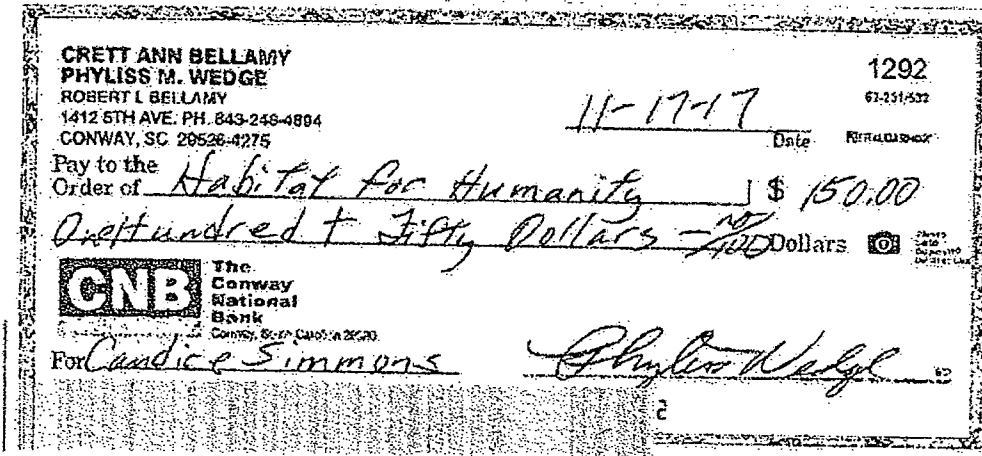 CRETT ANN BELLAMY
PHYLISS M. WEDGE
ROBERT L BELLAMY
1412 5TH AVE. PH. 843-248-4894
CONWAY, SC 29526-4275
1292
11-17-17
Date
Pay to the
Order of Habitat for Humanity $ 150.00
One Hundred + Fifty Dollars - no/100 Dollars
CNB
The
Conway
National
Bank
For Candice Simmons Phyliss Wedge
2